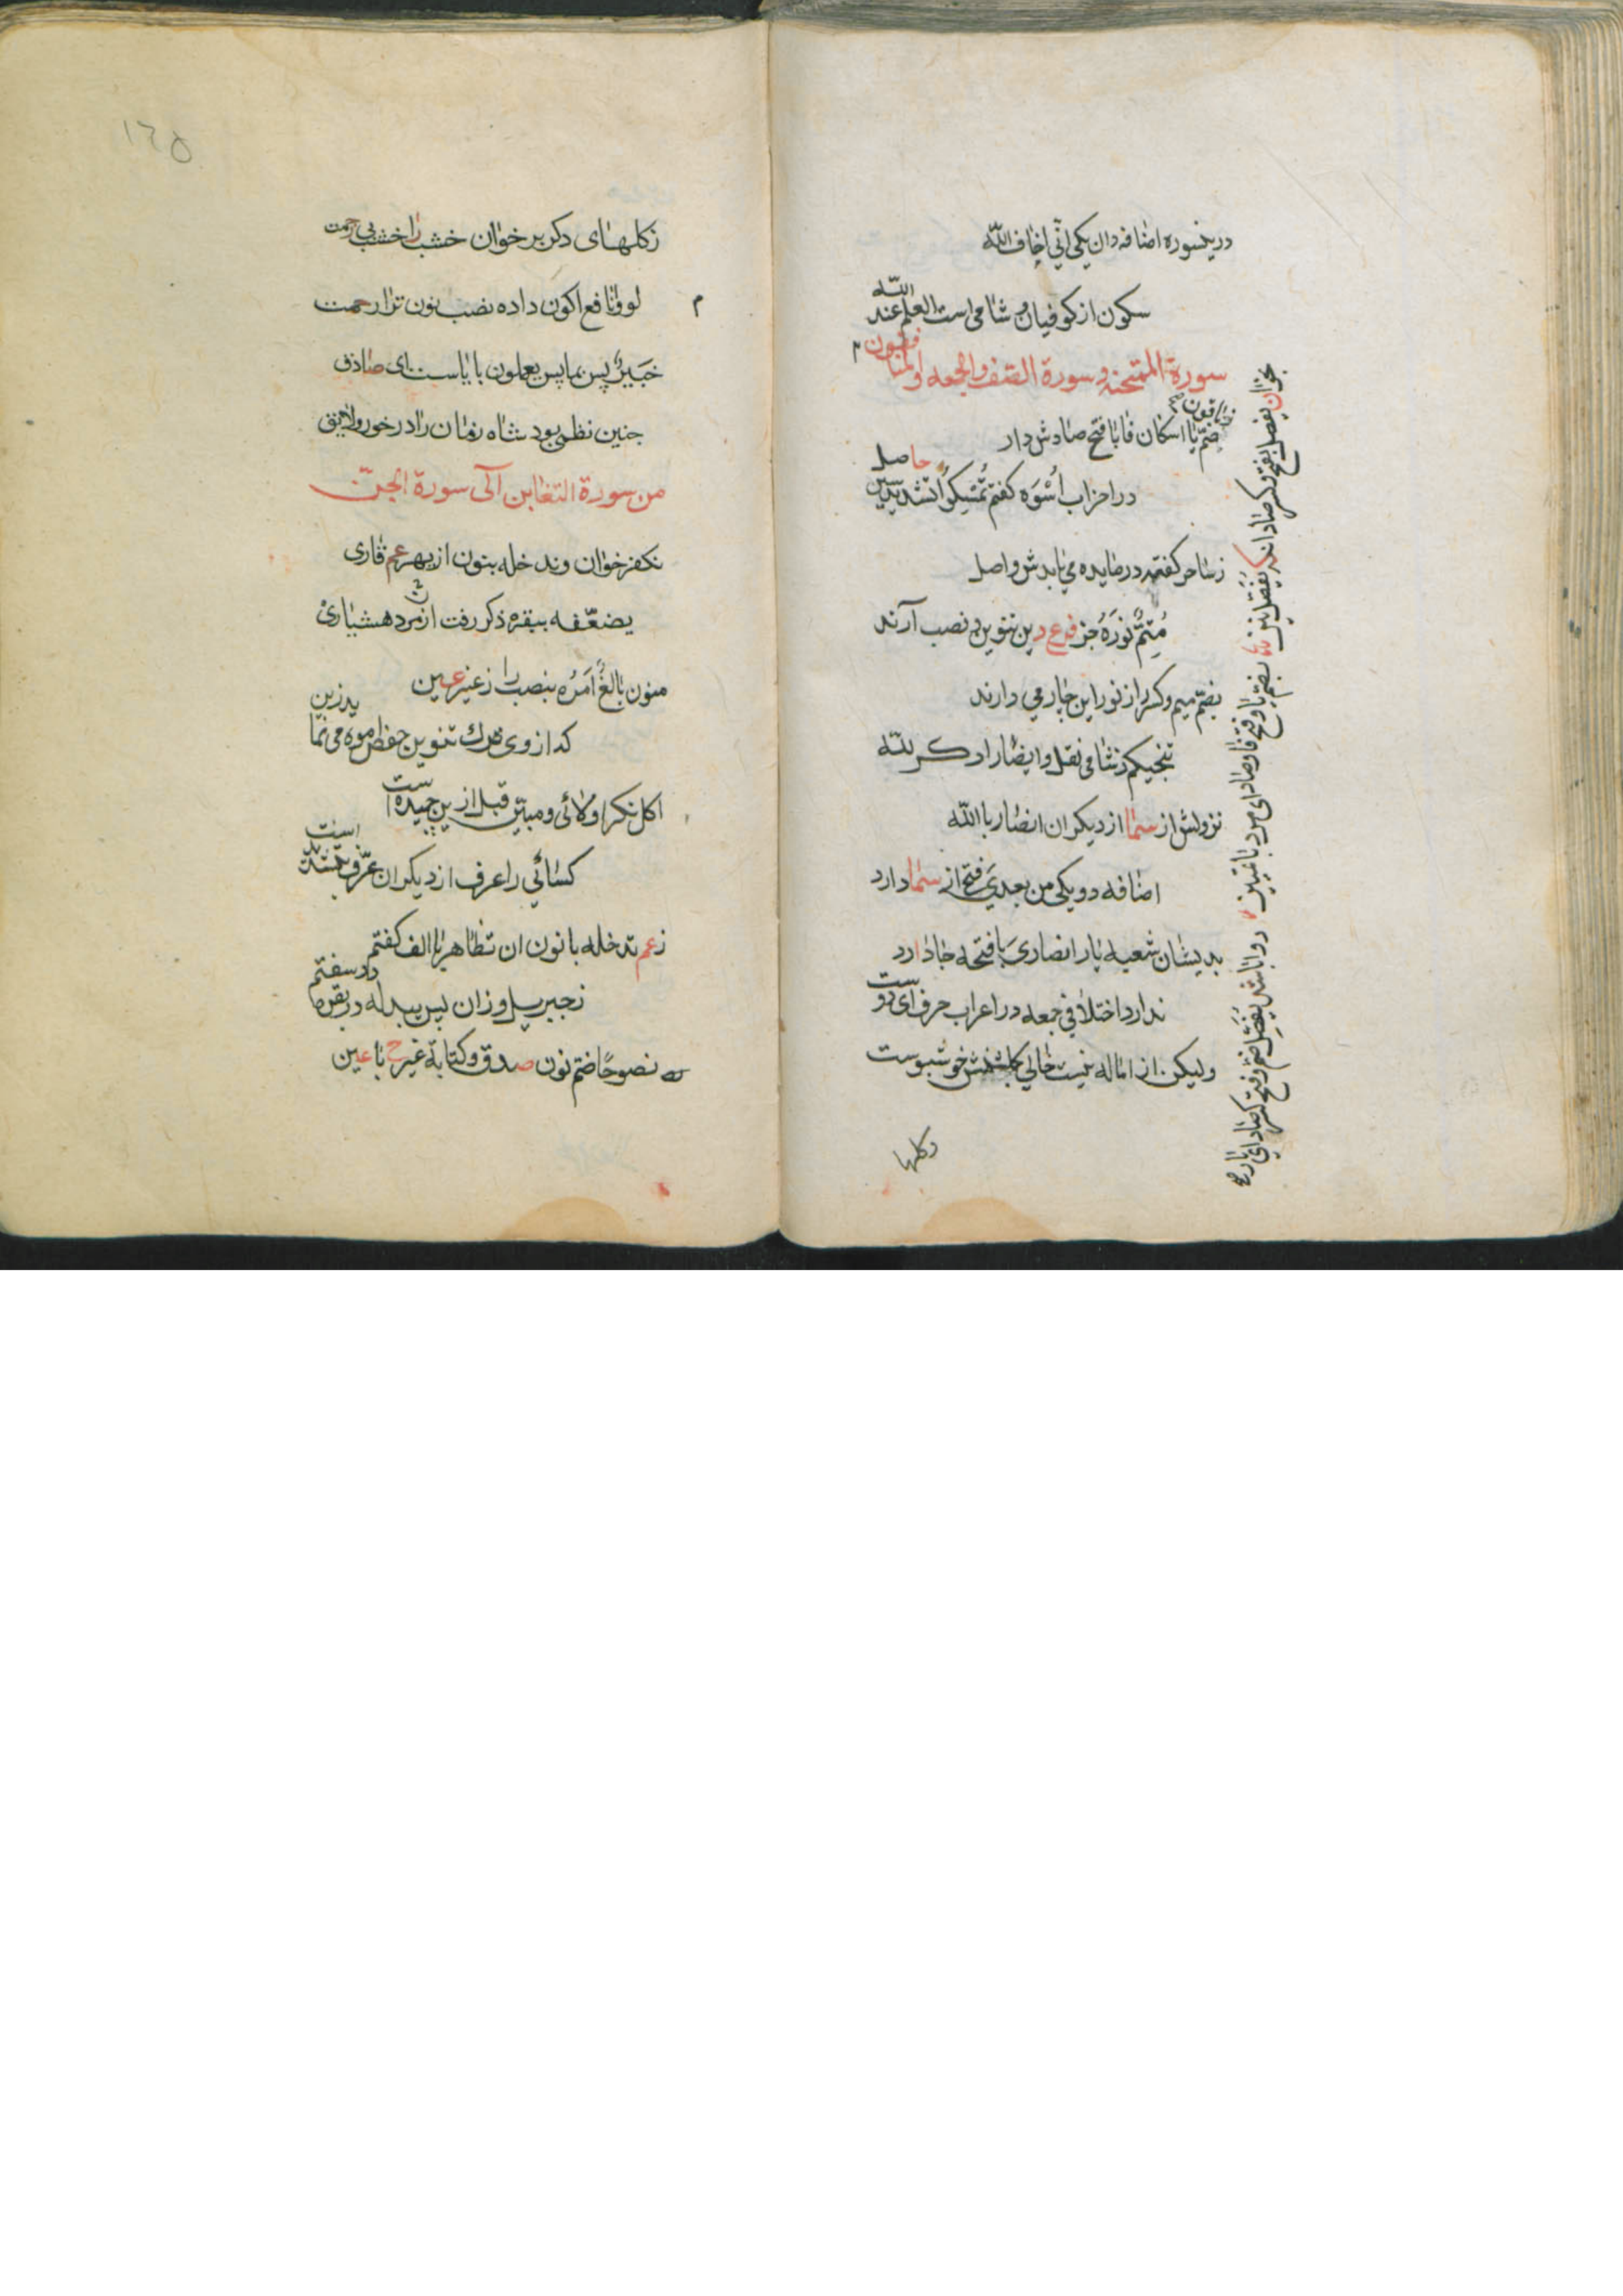 درینسوره اضافه دان یکی انّی اخاف اللّه
سکون از کوفیان و شامی است العلم عند اللّه
سورة الممتحنه و سورة الصف والجمعه والمنافقون
ضمّ یا اسکان فا با فتح صادش دار
در احزاب اُسْوَه کفتم تُمْسِکُوا تشدید سین حاصل
ز ساحر کفته در مایده می یابدش واصل
مُتِمُّ نورَهُ جز فرع دین تنوین و نصب آرند
بضمّ میم و کسر راز نور این جار می دارند
تنجیکم ز شامی نقل و ایضا را دکر للّه
نزولش از سما از دیکران انصار با اللّه
اضافه دو یکی من بعدیَ فتح از سما دارد
بدیشان شعبه یار انصاریَ با فتحه جا دارد
ندارد اختلافی جمعه در اعراب حرف ای دوست
ولیکن از اماله نیست خالی کلشنش خوشبوست
وکلها
بخوان یفصل بفتح و کسر صاد اند یُفَصَّل نیز بضمّ یا و فتح فا و صاد ای مرد با تمییز
روا باشد یُفَصِّل ضم و فتح کسر صاد ای یار
١٦٥
ز کلهای دکر بر خوان خشب را خشب بی رحمت
لووا نافع اکون داده نصب نون ترا رحمت
خَبیرٌ پس بما پس یعملون با یاست ای صادق
چنین نظمی بود شاه زمان را در خور و لایق
من سورة التغابن الی سورة الجنّ
نکفر خوان و ندخله بنون از بهر عم قاری
یضعّفه ببقره ذکر رفت از مرد هشیاری
منون بالغٌ اَمرَه بنصب را ز غیر عین
که از وی ترک تنوین حفض اموه می نماید زین
اکل نکرا ولائی و مبیّن قبل ازین چیده است
کسائی را عرف از دیکران عرّف بتشدید است
ز عم ندخله با نون ان تظاهر با الف کفتم
ز جبریل و زان پس یبدله در بقره ما در سفتم
نصوحًا ضم نون صدق و کتابه غیر ح با عین